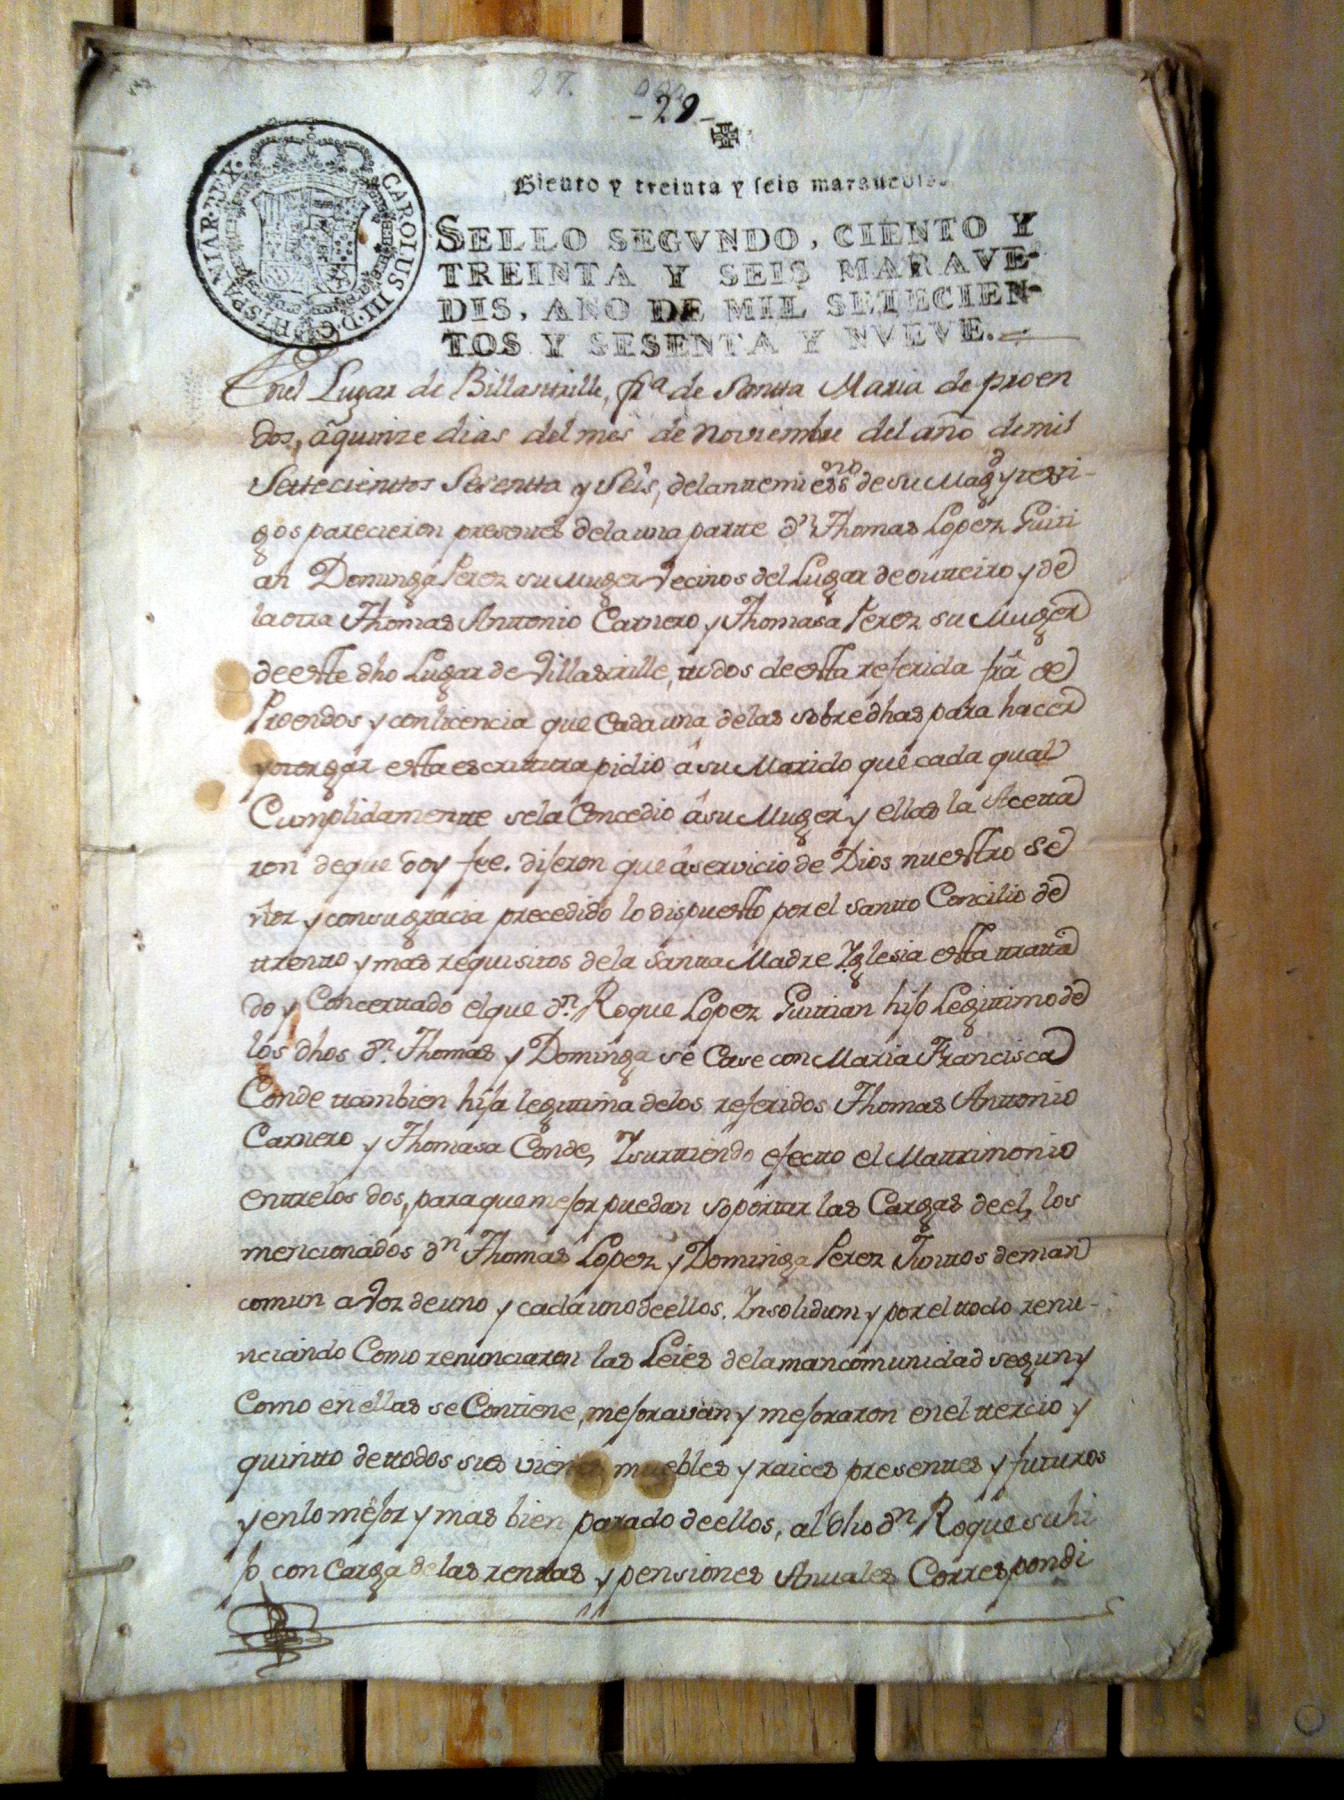 27.
-29-
Siento y treinta y seis maravedis.
SELLO SEGVNDO, CIENTO Y
TREINTA Y SEIS MARAVE-
DIS, AÑO DE MIL SETECIEN-
TOS Y SESENTA Y NVEVE.
CAROLUS III. D. G. HISPANIAR. REX.
Enel Lugar de Billastrille, fra de Santta Maria de proen
dos, âquinze dias del mes de Noviembre del año demil
Settecienttos Sesentta y Seis, delanttemi essno de su Magd y testi-
gos parecieron presentes dela una partte dn Thomas Lopez Guiti
an Dominga Perez su Muger Vecinos del Lugar de outeiro y de
la otra Thomas Anttonio Carnero y Thomasa Perez su Muger
de este dho Lugar de Villastrille, ttodos de esta referida frâ de
Proendos y con licencia que cada una delas sobre dhas para hacer
y otorgar esta escrittura pidio â su Marido que cada qual
Cumplidamentte sela Concedio â su Muger y ellas la Acetta
ron de que doy fee. dijeron que âservicio de Dios nuestro Se
ñor y con su gracia precedido lo dispuesto por el Santto Concilio de
ttrentto y mas requisitos de la Santta Madre Yglesia esta ttratta
do y Concerttado el que dn. Roque Lopez Guittian hijo Legittimo de
los dhos dn. Thomas y Dominga se Case con Maria Francisca
Conde ttambien hija legittima delos referidos Thomas Anttonio
Carnero y Thomasa Conde, Y surttiendo efectto el Mattrimonio
entre los dos, para que mejor puedan soporttar las Cargas de el, los
mencionados dn Thomas Lopez y Dominga Perez Junttos deman
comun a Voz de uno y cada uno de ellos. Ynsolidum y por el ttodo renu-
nciando Como renunciaron las Leies dela mancomunidad segun y
Como en ellas se Contiene, mejoravan y mejoraron en el ttercio y
quintto de ttodos sus vienes muebles y raices presenttes y futuros
y en lo mejor y mas bien parado de ellos, al dho dn Roque su hi
jo con Carga de las renttas y pensiones Anuales Correspondi